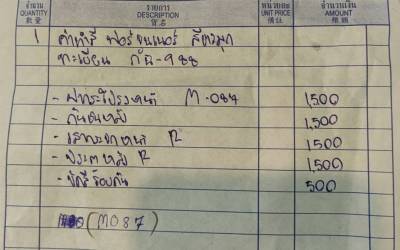 จำนวน รายการ หน่วยละ จำนวนเงิน
QUANTITY DESCRIPTION UNIT PRICE AMOUNT
數量 貨名 價註 銀額
1 ค่าทำสี ฟอร์จูนเนอร์ สีขาวมุก
ทะเบียน กจ-988
- ฝากระโปรงหน้า M-087 1,500
- กันชนหลัง 1,500
- แก้มรถหน้า R 1,500
- ประตูหลัง R 1,500
- ขัดสีรอบคัน 500
(M087)